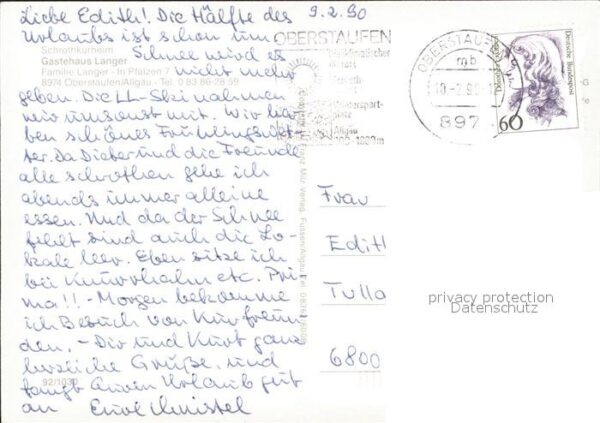 Liebe Edith! Die Hälfte des
9.2.90
Urlaubs ist schon um
Schrothkurheim
Gästehaus Langer
Schnee wird es
Familie Langer - In Pfalzen 7
8974 Oberstaufen/Allgäu - Tel. 0 83 86-28 59
nicht mehr
geben. Die LL-Ski nahmen
wir umsonst mit. Wir ha-
ben schönes Frühlingswet-
ter. Da Dieter und die Freunde
alle schrothen gehe ich
abends immer alleine
essen. Und da der Schnee
fehlt sind auch die Lo-
kale leer. Eben sitze ich
bei Knurrhahn etc. Pri
ma!! - Morgen bekomme
ich Besuch von Kurfreun
den. - Dir und Kurt ganz
herzliche Grüße und
fangt Euren Urlaub gut
an Eure Christel
92/1030
OBERSTAUFEN
Allgäu
OBERSTAUFEN
mb
10.-2.90
897
Deutsche Bundespost
60
Frau
Edith
Tulla
6800
privacy protection
Datenschutz